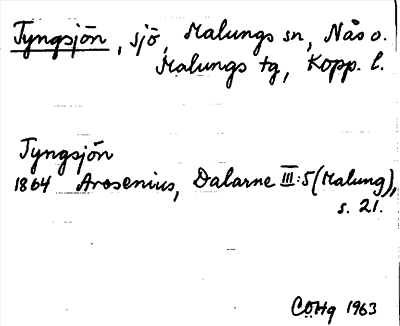 Tyngsjön, sjö, Malungs sn, Nås o.
Malungs tg, Kopp. l.
Tyngsjön
1864 Arosenius, Dalarne III:5 (Malung),
s. 21.
COHg 1963